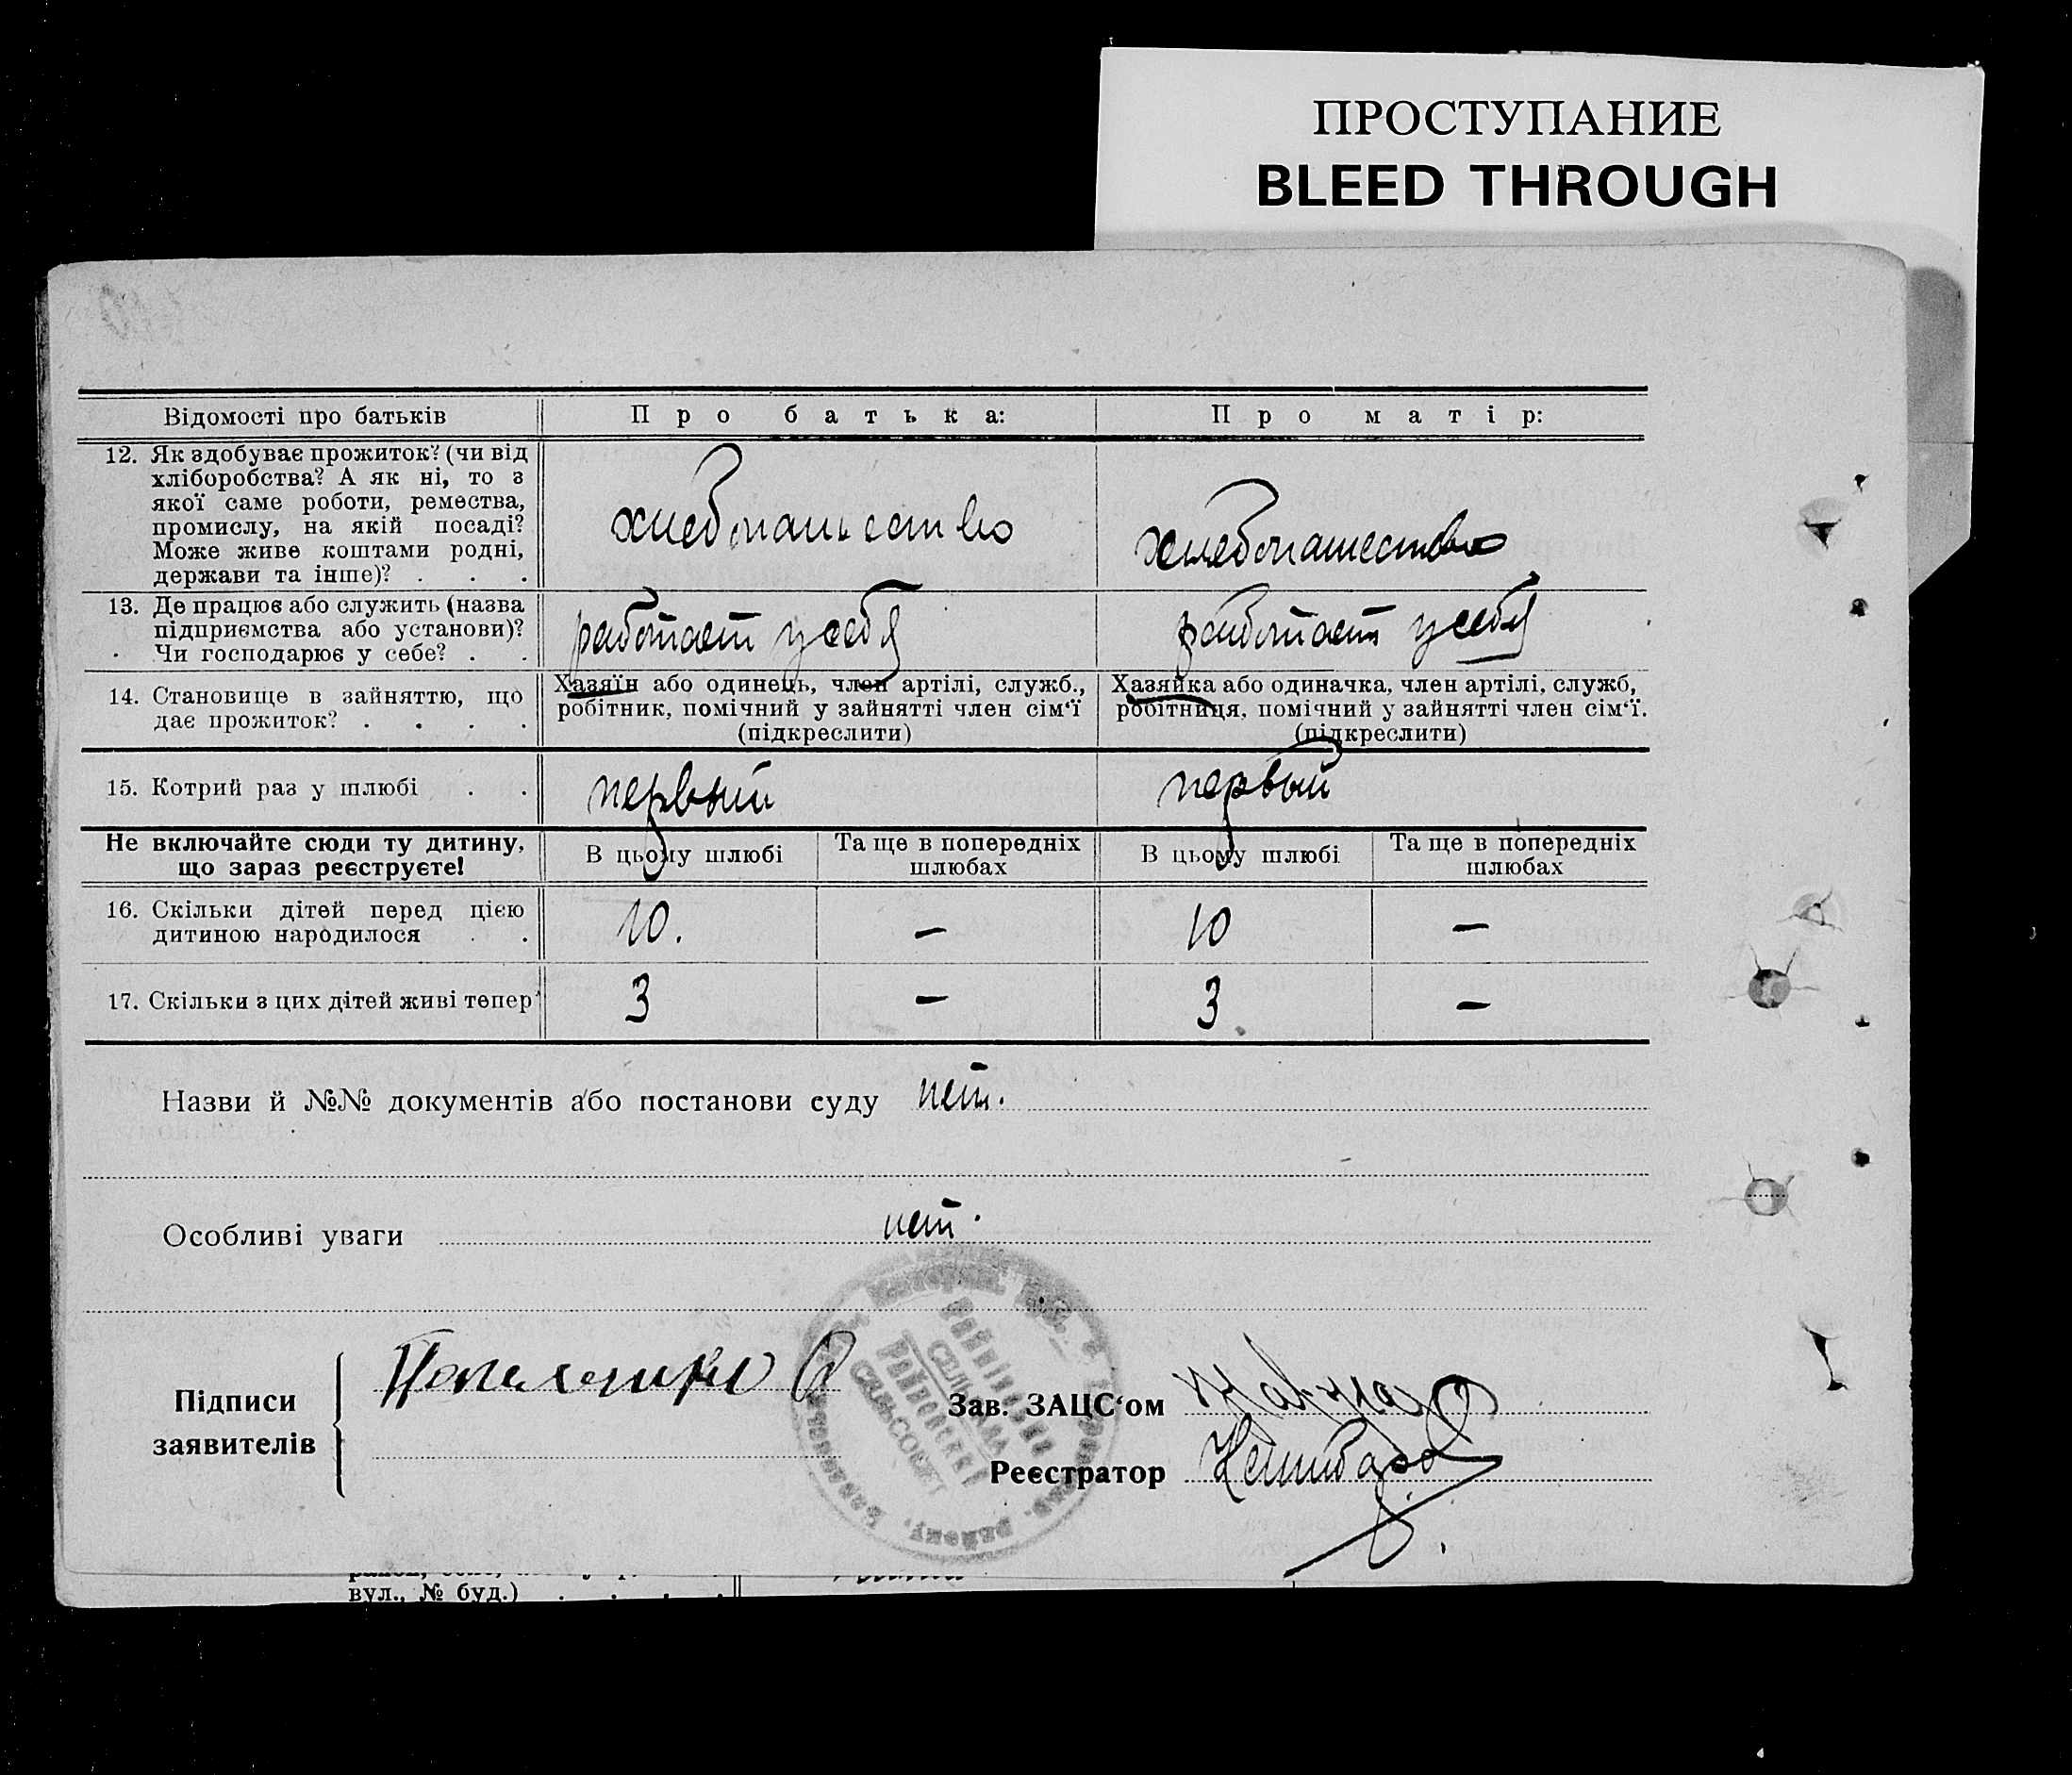 ПРОСТУПАНИЕ
BLEED THROUGH
Відомості про батьків
Про батька:
Про матір:
12. Як здобуває прожиток? (чи від
хліборобства? А як ні, то з
якої саме роботи, ремества,
промислу, на якій посаді?
Може живе коштами родні,
держави та інше)? . . .
хлебопашество
хлебопашество
13. Де працює або служить (назва
підприємства або установи)?
Чи господарює у себе? . .
работает у себя
работает у себя
14. Становище в зайняттю, що
дає прожиток? . . . .
Хазяїн або одинець, член артілі, служб.,
робітник, помічний у зайнятті член сім‘ї
(підкреслити)
Хазяйка або одиначка, член артілі, служб,
робітниця, помічний у зайнятті член сім‘ї.
(підкреслити)
15. Котрий раз у шлюбі . .
первый
первый
Не включайте сюди ту дитину,
що зараз реєструєте!
В цьому шлюбі
Та ще в попередніх
шлюбах
В цьому шлюбі
Та ще в попередніх
шлюбах
16. Скільки дітей перед цією
дитиною народилося . .
10.
—
10
—
17. Скільки з цих дітей живі тепер
3
—
3
—
Назви й №№ документів або постанови суду нет.
Особливі уваги нет.
Підписи
заявителів
Зав. ЗАЦС‘ом
Реєстратор
СЕЛЬСОВЕТ
вул., № буд.) . . . .